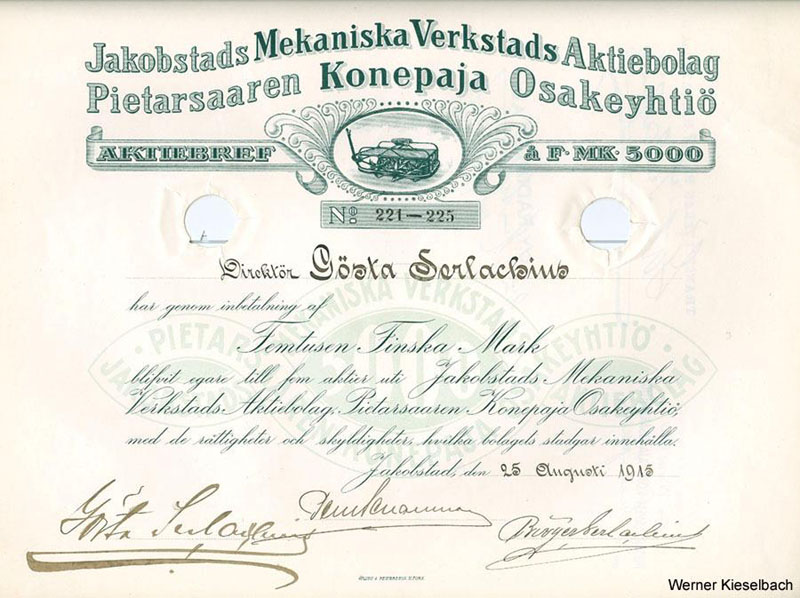 Jakobstads Mekaniska Verkstads Aktiebolag
Pietarsaaren Konepaja Osakeyhtiö
AKTIEBREF à F. MK. 5000
No 221—225
Direktör Gösta Serlachius
har genom inbetalning af
Femtusen Finska Mark
blifvit egare till fem aktier uti Jakobstads Mekaniska
Verkstads Aktiebolag, Pietarsaaren Konepaja Osakeyhtiö,
med de rättigheter och skyldigheter, hvilka bolagets stadgar innehålla.
Jakobstad, den 25 Augusti 1915
Gösta Serlachius
Birger Serlachius
Werner Kieselbach